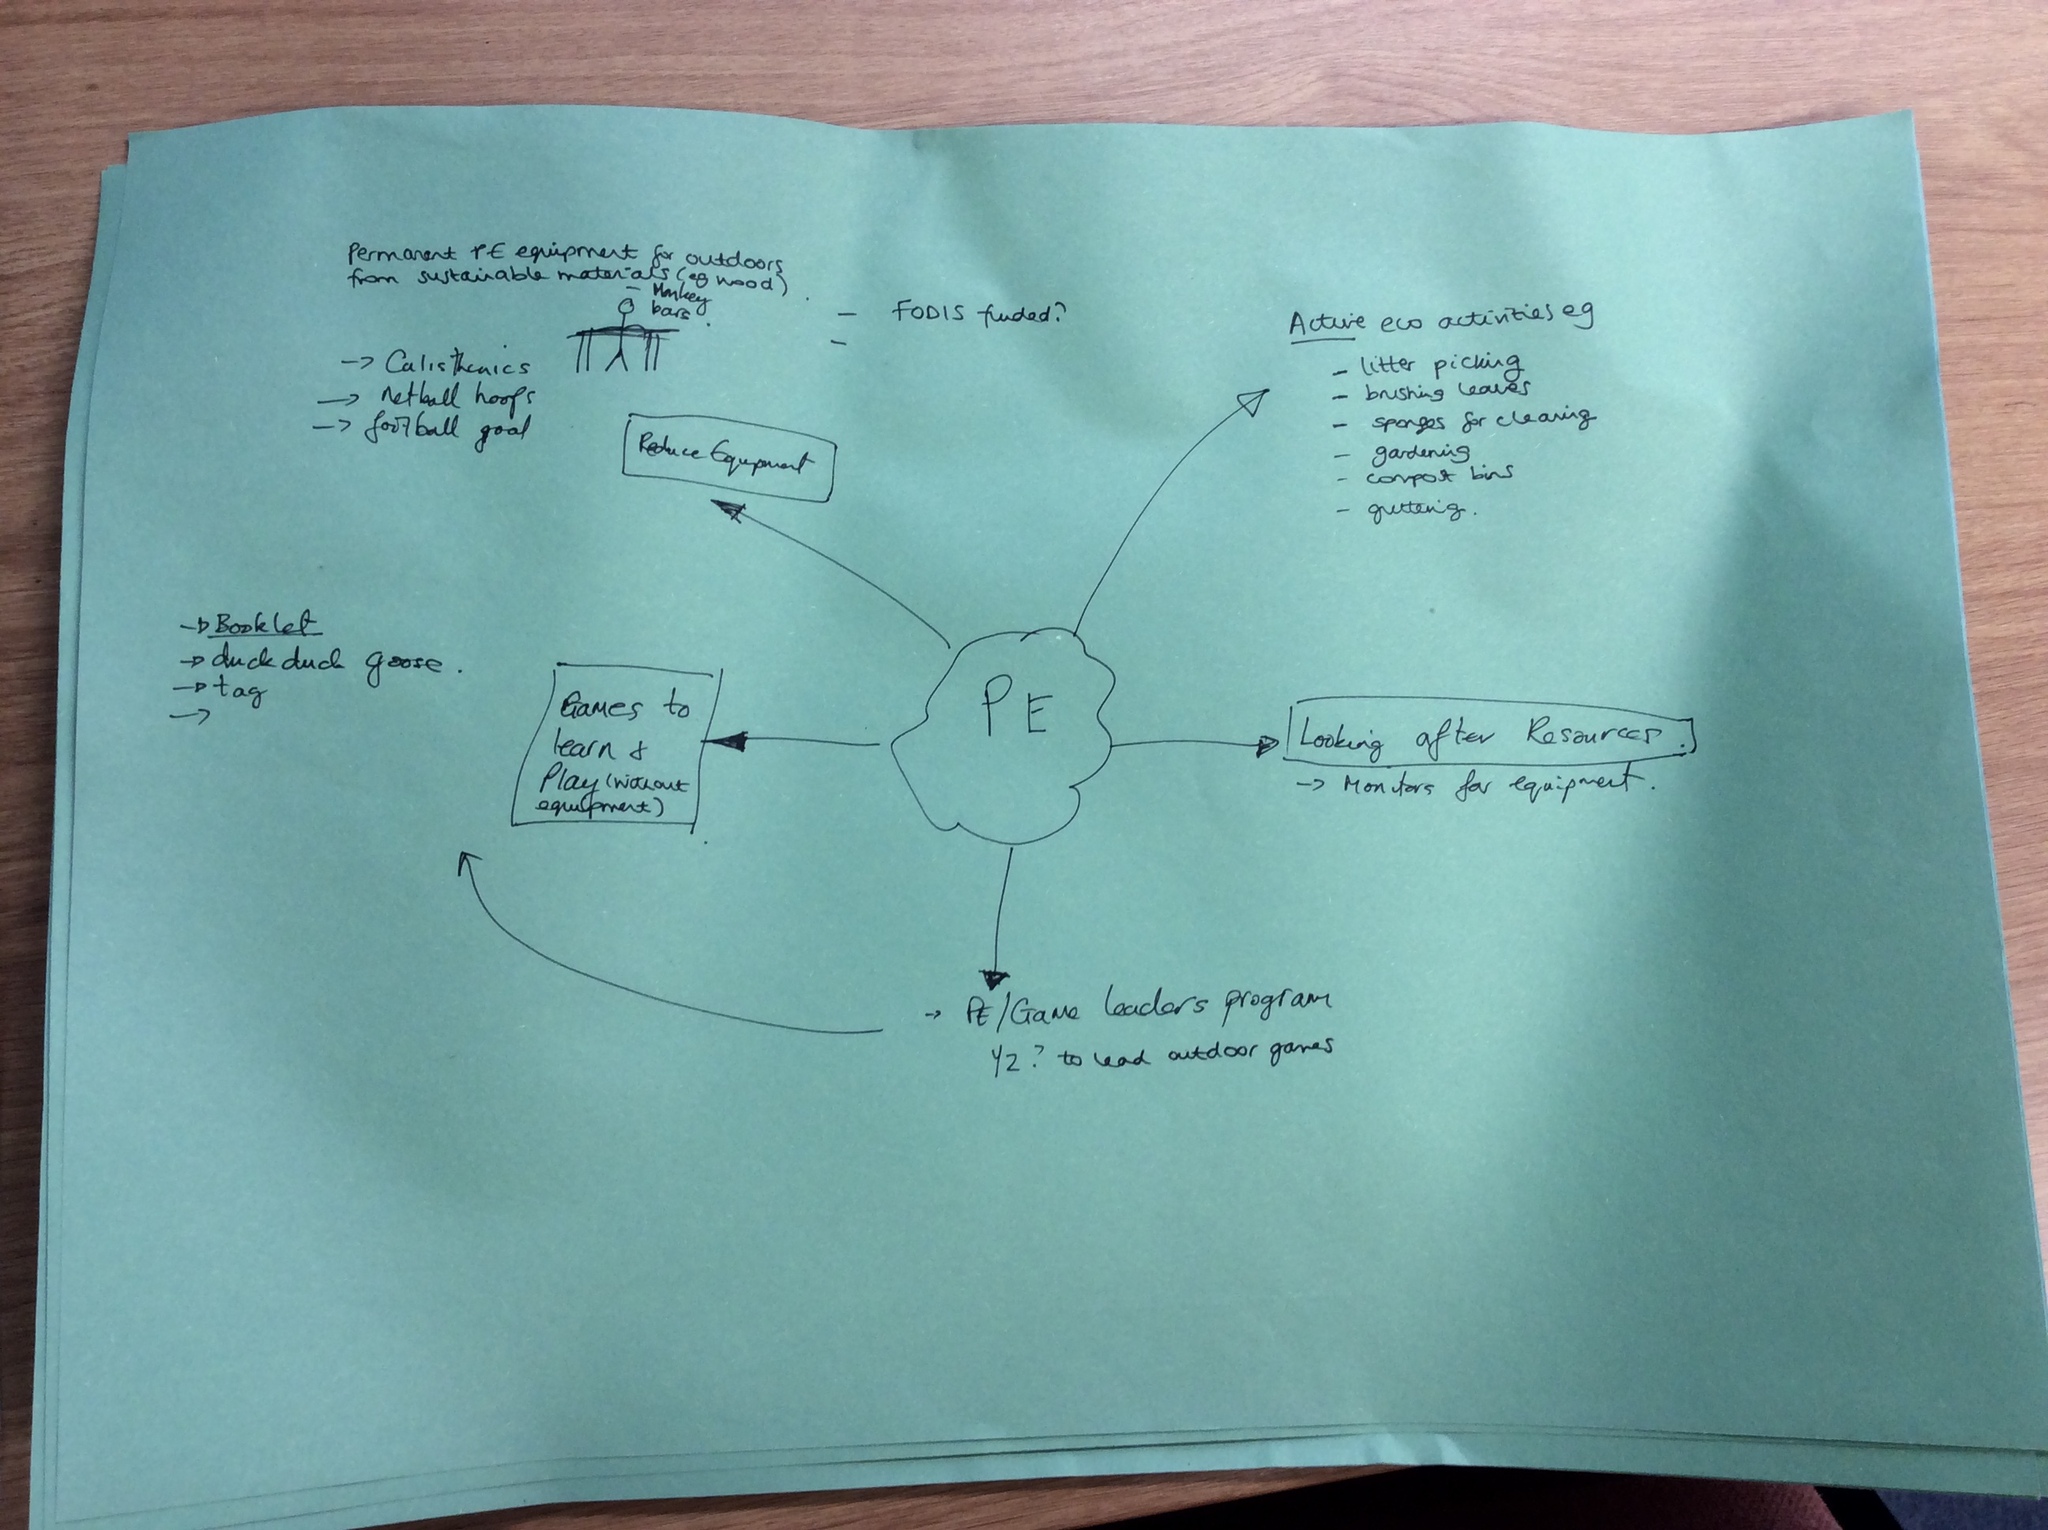 Permanent PE equipment for outdoors
from sustainable materials (eg wood).
- Monkey
bars.
-> Calisthenics
-> Netball hoops
-> football goal
- FODIS funded?
-
Reduce Equipment
Active eco activities eg
- litter picking
- brushing leaves
- sponges for cleaning
- gardening
- compost bins
- guttering.
-> Booklet
-> duck duck goose.
-> tag
->
Games to
learn &
Play (without
equipment)
PE
Looking after Resources.
-> Monitors for equipment.
-> PE/Game leaders program
Y2? to lead outdoor games